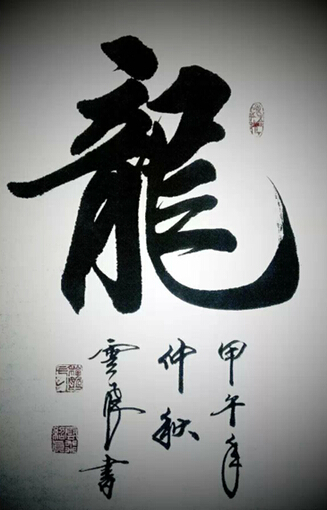 龍
甲午年
仲秋
雲 書